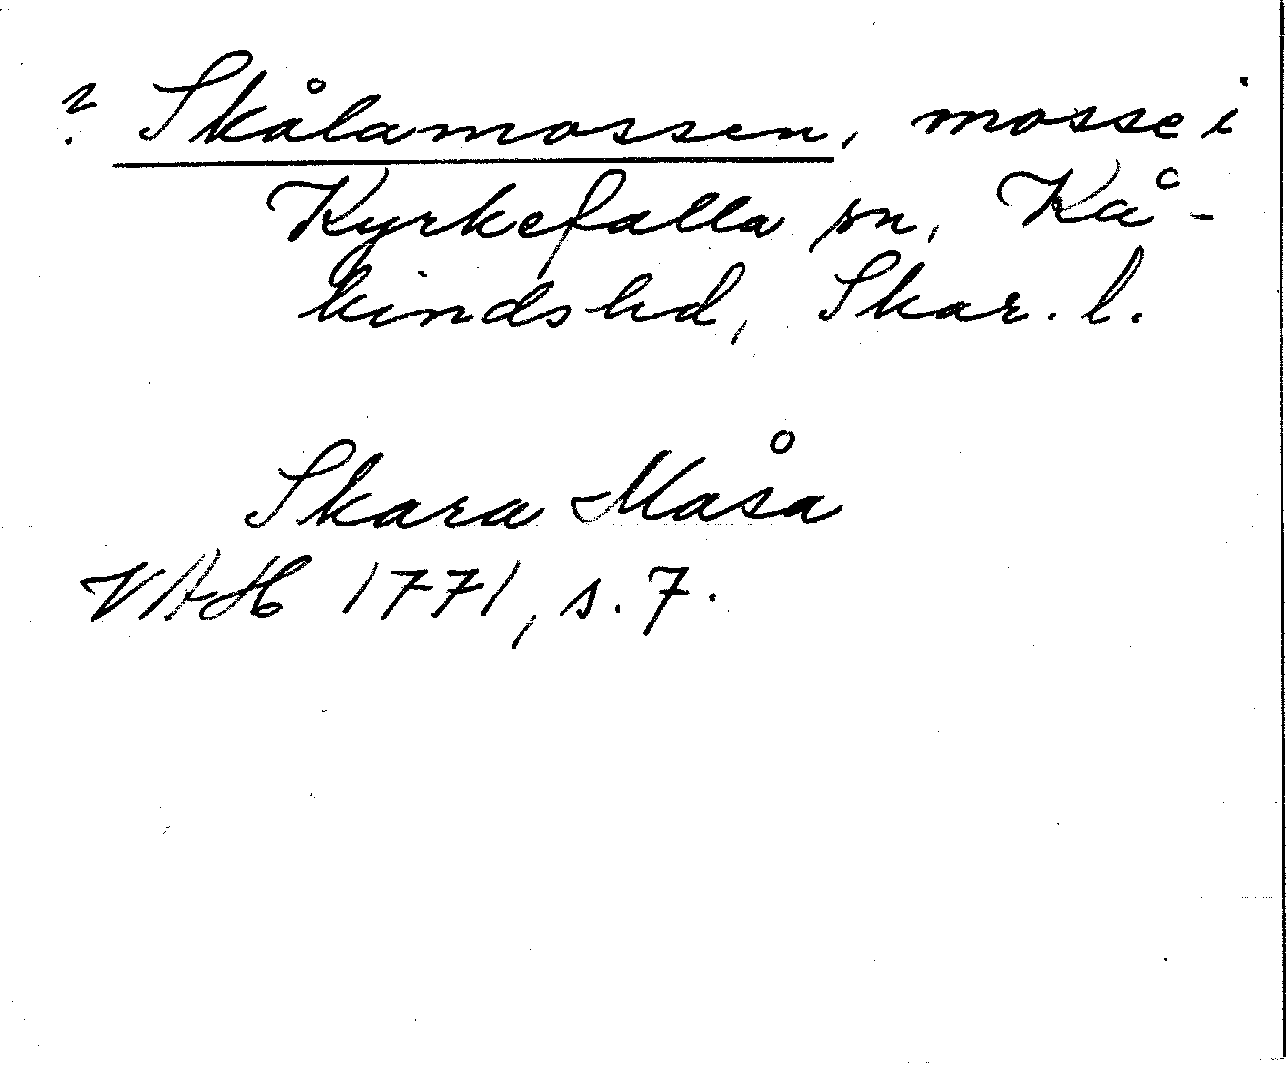 ? Skålamossen, mosse i
Kyrkefalla sn, Kå-
kindshd, Skar. l.
Skara Måsa
VAH 1771, s. 7.